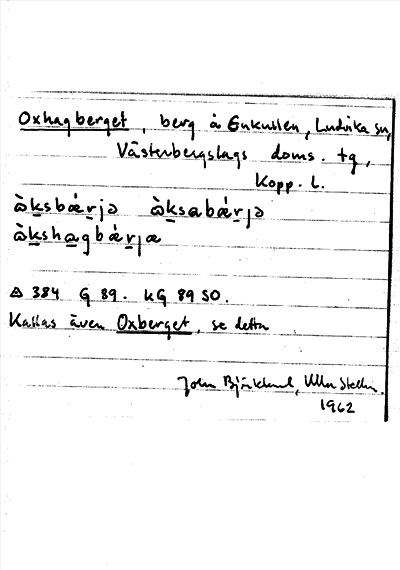 Oxhagberget, berg å Gukullen, Ludvika sn,
Västerbergslags doms. tg,
Kopp. L.
ὼksbǽrjə ὼksabǽrjə
ὼkshagbǽrjæ
∆ 384 G 89. kG 89 SO.
Kallas även Oxberget, se detta
John Björklund, Ulla Stellin.
1962